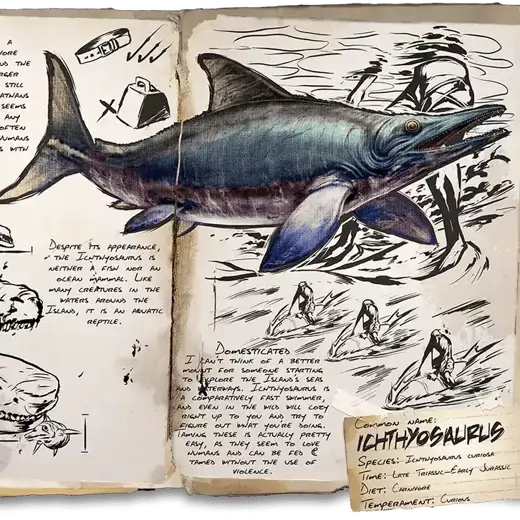 A
VORE
ND THE
RGER
STILL
ATHANS
SEEMS
ANY
OFTEN
HUMANS
S WITH
DESPITE ITS APPEARANCE,
THE ICHTHYOSAURUS IS
NEITHER A FISH NOR AN
OCEAN MAMMAL. LIKE
MANY CREATURES IN THE
WATERS AROUND THE
ISLAND, IT IS AN AQUATIC
REPTILE.
DOMESTICATED
I CAN'T THINK OF A BETTER
MOUNT FOR SOMEONE STARTING
TO EXPLORE THE ISLAND'S SEAS
AND WATERWAYS. ICHTHYOSAURUS IS
A COMPARATIVELY FAST SWIMMER,
AND EVEN IN THE WILD WILL COZY
RIGHT UP TO YOU AND TRY TO
FIGURE OUT WHAT YOU'RE DOING.
TAMING THESE IS ACTUALLY PRETTY
EASY, AS THEY SEEM TO LOVE
HUMANS AND CAN BE FED @
TAMED WITHOUT THE USE OF
VIOLENCE.
COMMON NAME:
ICHTHYOSAURUS
SPECIES: ICHTHYOSAURUS CURIOSA
TIME: LATE TRIASSIC-EARLY JURASSIC
DIET: CARNIVORE
TEMPERAMENT: CURIOUS